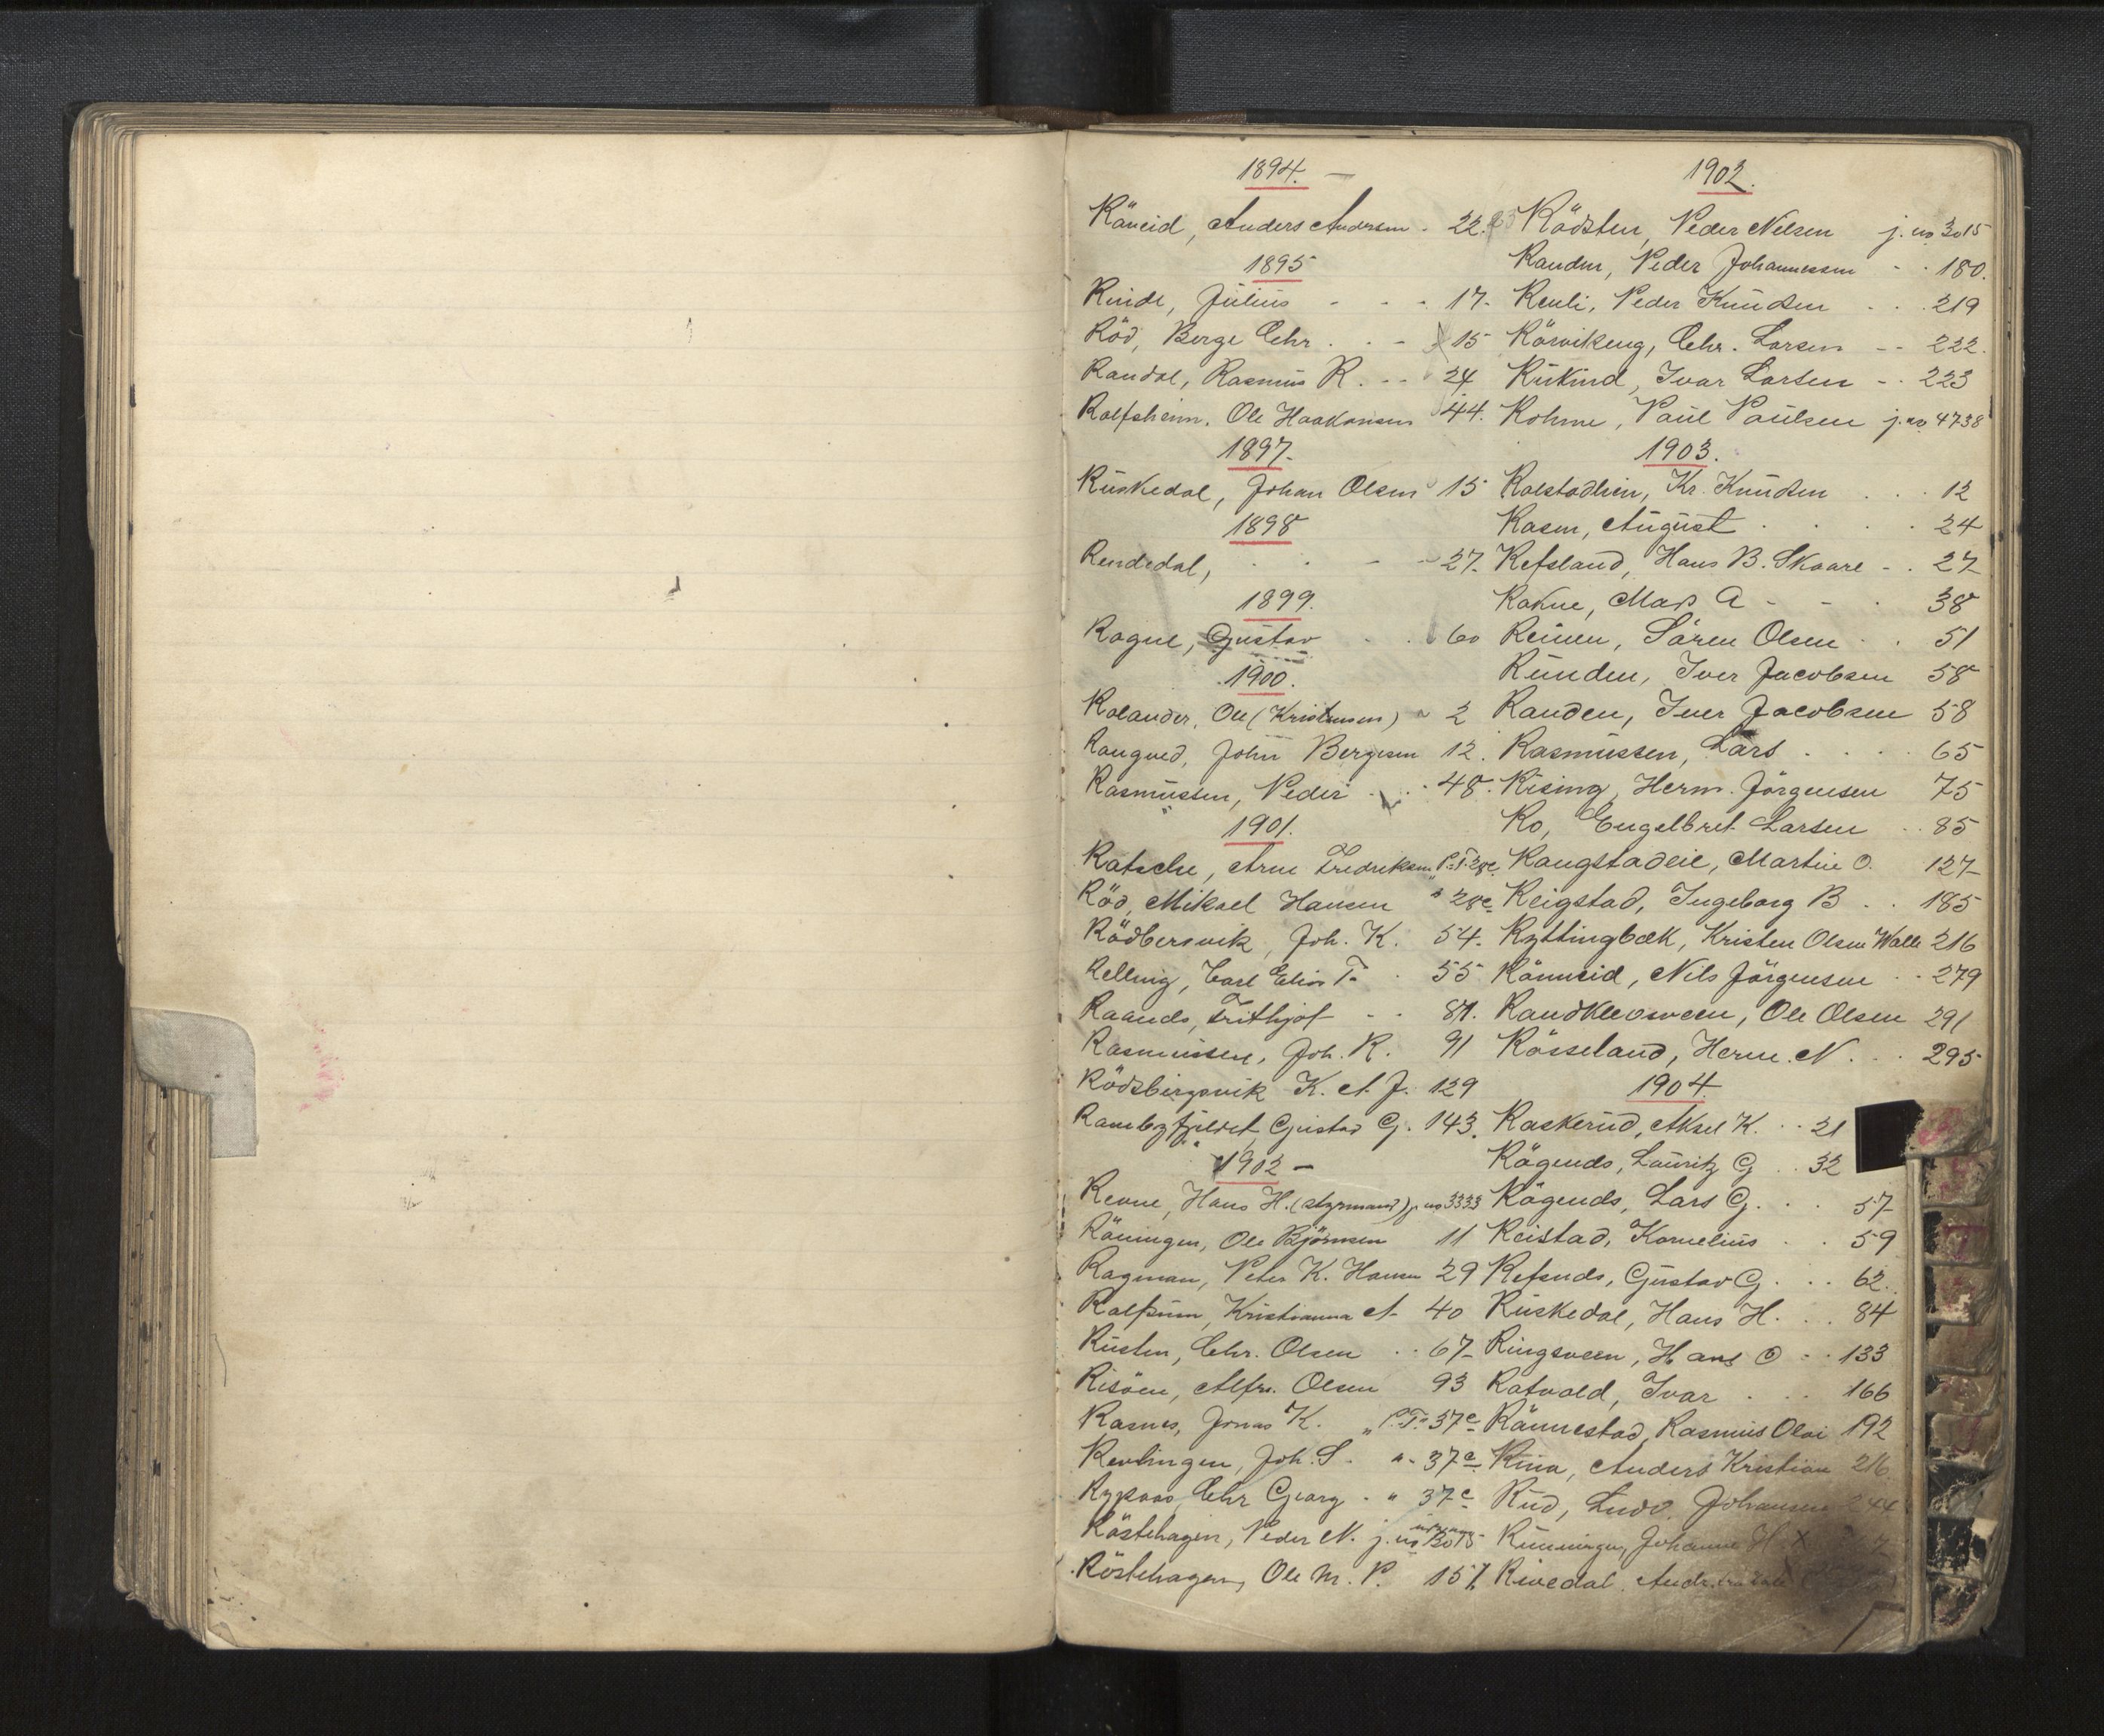 1894.
Råneid, Anders Andersen - 22.
1895
Rinde, Julius - - - 17.
Röd, Berge Chr. - - 15
Randal, Rasmus R. - - 24
Rolfsheim, Ole Haakonsen 44.
1897.
Ruskedal, Johan Olsen 15
1898
Rendedal, 27.
1899.
Rogne, Gustav 60
1900.
Rolander, Ole (Kristensen) 2
Rangved, John Bergesen 12.
Rasmussen, Peder 48.
1901.
Ratsche, Arne Fredriksen P.T. 28c.
Röd, Mikael Hansen " 28c.
Rödbersvik, Joh. K. 54.
Relling, Carl Elias T. 55
Raanes, Frithjof - - 87.
Rasmussen, Joh. R. 91
Rödsbergsvik K. A. J. 129
Rambyfjeldet, Gustav G. 143.
1902 -
Revne, Hans H. (styrmand) j. no 3333
Röningen, Ole Björnsen 11
Ragman, Peter K. Hansen 29
Kristianna A. 40
Rusten, Chr. Olsen 67
Risöen, Alfr. Olsen 93
Rasnes, Jonas K. " P.T. 37c
Revlingen, Joh. S. " 37c
Chr Georg " 37c
Röstehagen, Peder N. j. no 3015
Röstehagen, Ole M. P. 157
1902.
Rödsten, Peder Nilsen j. no 3015
Randen, Peder Johannessen - - 180.
Renli, Peder Knudsen 219
Rörvikeng, Chr. Larsen - - 222.
Rukind, Ivar Larsen - - 223
Rohme, Paul Paulsen j. no 4738
1903.
Rolstadhein, Kr. Knudsen 12
Rasen, August 24
Refsland, Hans B. Skaare - . 27
Rokne, Mads A - - 38
Reinen, Sören Olsen 51
Runden, Iver Jacobsen 58
Randen, Iver Jacobsen 58
Rasmussen, Lars 65
Rising, Herm. Jörgensen 75
Ro, Engelbret Larsen 85
Rangstadeie, Martin O. 127
Reigstad, Ingeborg B 185
Ryttingbæk, Kristen Olsen Walle 216
Rönneid, Nils Jörgensen 279
Randkleveveen, Ole Olsen 291
Rösseland, Herm. N. 295
1904.
Raskerud, Aksel K. 21
Rögends, Lauritz G 32
Rögends, Lars G. 57
Reistad, Kornelius 59
Refsnds, Gustav G. 62.
Ruskedal, Hans H. 84
Ringsveen, Hans O 133
Rotvold, Ivar 166
Rönnestad, Rasmus Olai 192
Rina, Anders Kristian 216
Rud, Ludv. Johansen 244
Runningen, Johanne H. X
Rivedal, Andr.